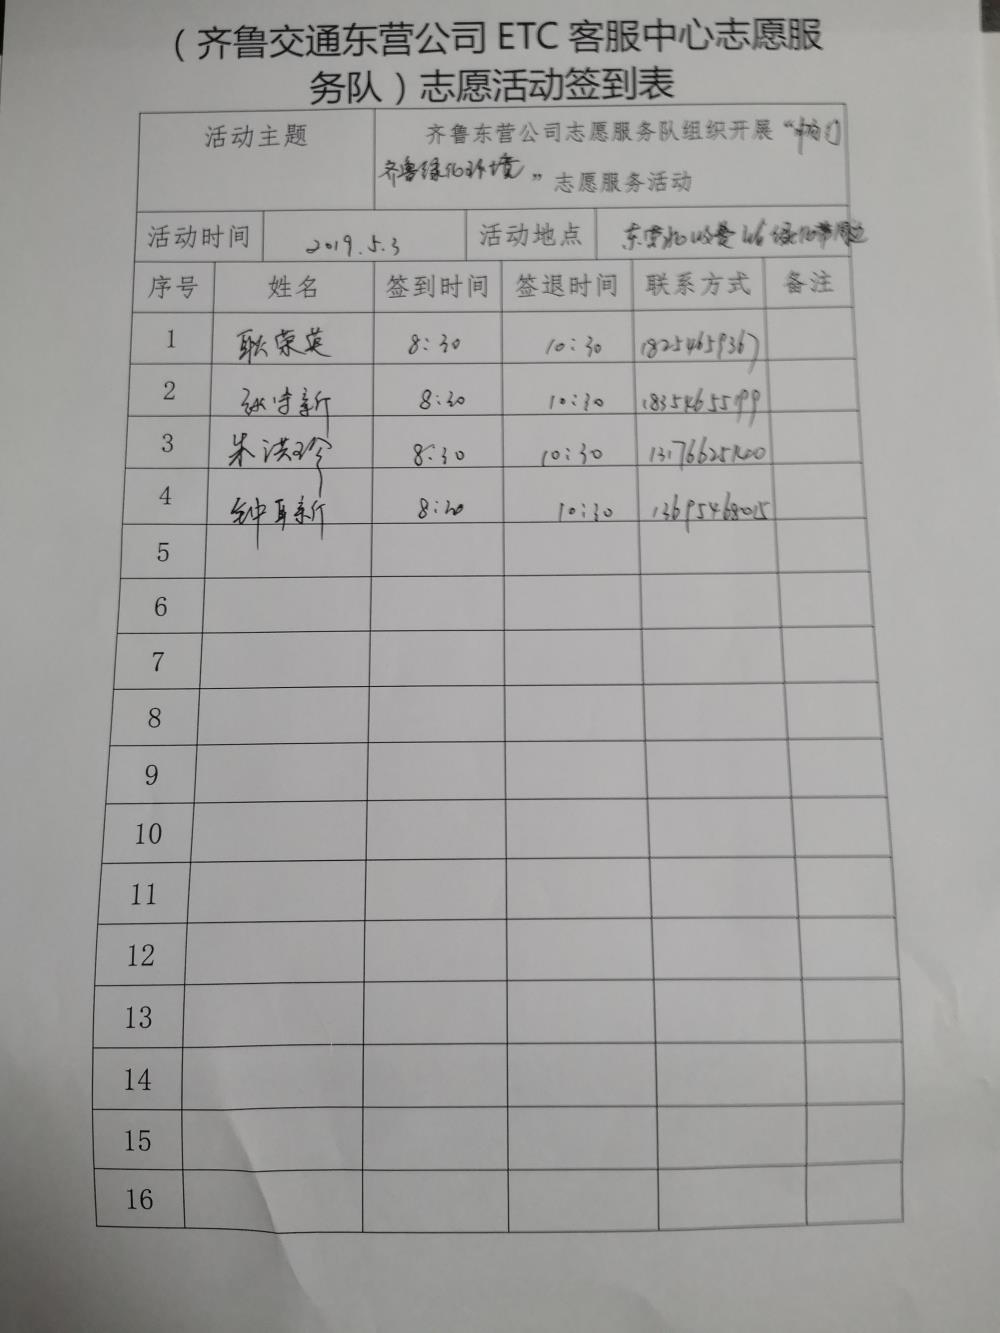 （齐鲁交通东营公司 ETC 客服中心志愿服
务队）志愿活动签到表
活动主题 齐鲁东营公司志愿服务队组织开展“畅行
齐鲁绿化环境”志愿服务活动
活动时间 2019.5.3 活动地点
序号 姓名 签到时间 签退时间 联系方式 备注
1 耿荣英 8:30 10:30 18254659367
2 8:30 10:30 18354655199
3 朱洪珍 8:30 10:30
4 8:30 10:30 13695468015
5
6
7
8
9
10
11
12
13
14
15
16